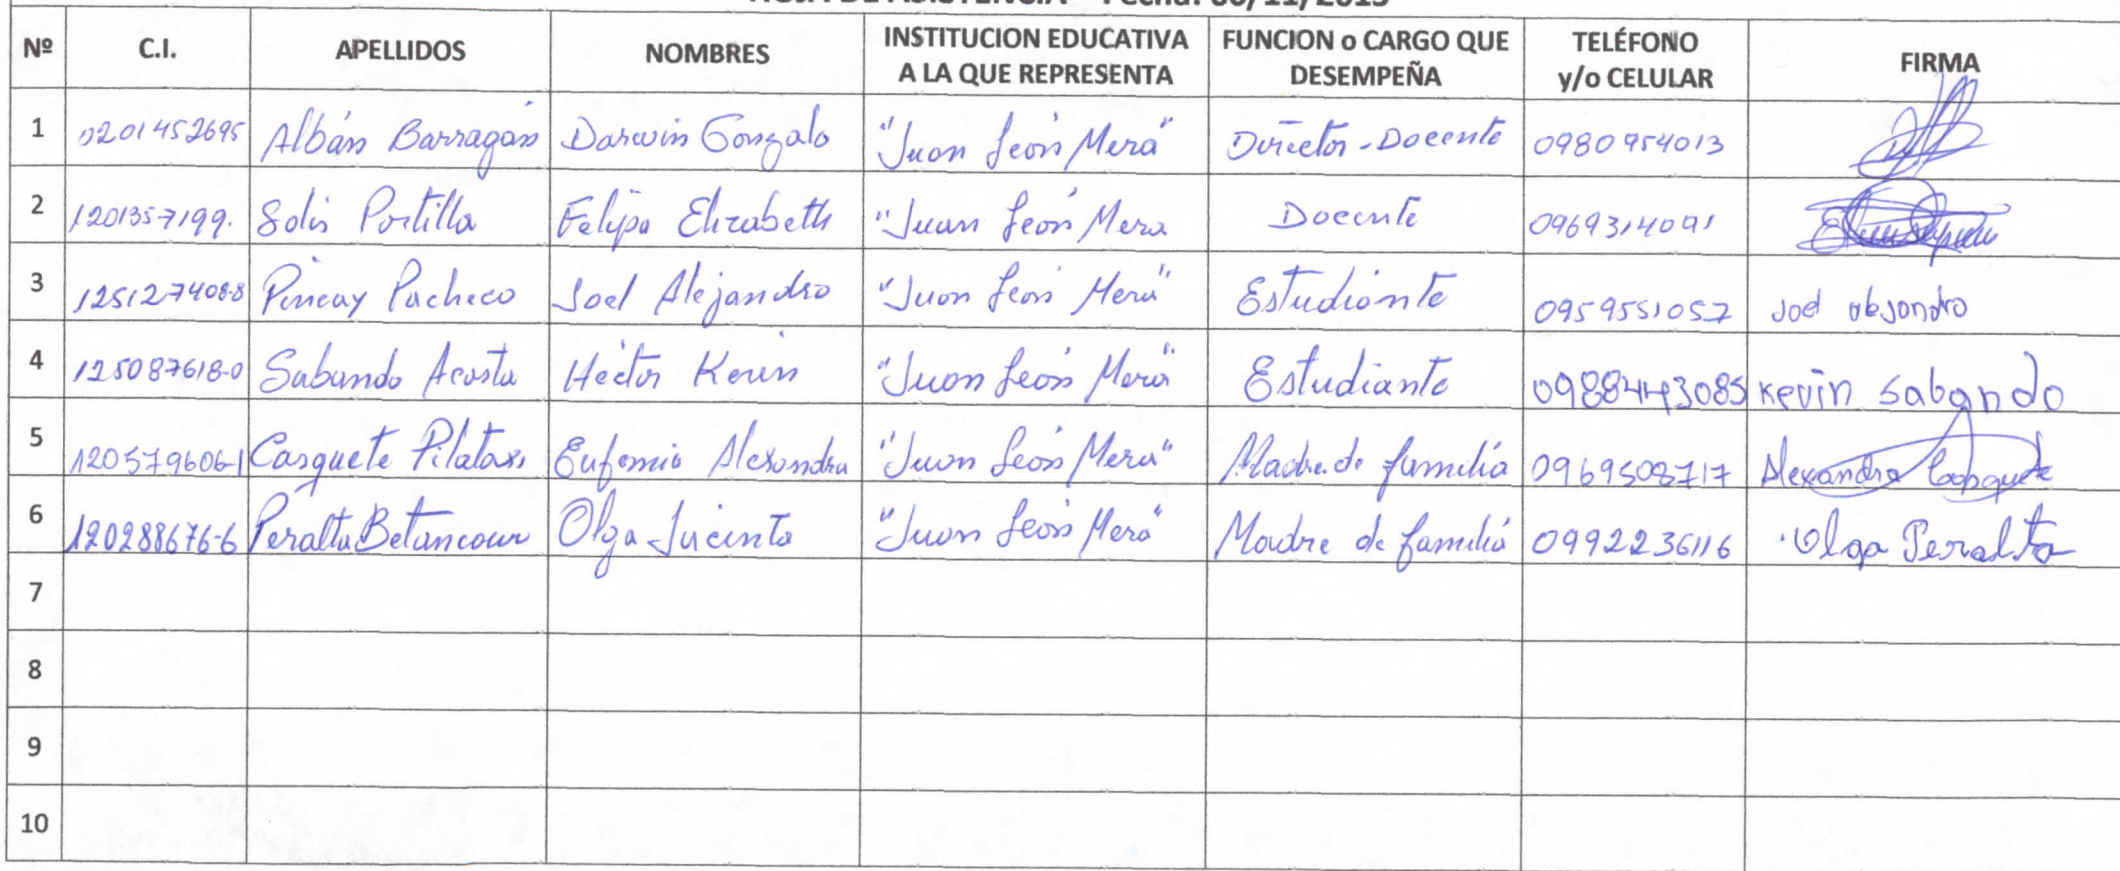 HOJA DE ASISTENCIA Fecha: 06/11/2015
Nº C.I. APELLIDOS NOMBRES INSTITUCION EDUCATIVA A LA QUE REPRESENTA FUNCION o CARGO QUE DESEMPEÑA TELÉFONO y/o CELULAR FIRMA
1 0201452695 Albán Barragán Darwin Gonzalo "Juan León Mera" Director-Docente 0980954013
2 1201357199. Solis Portilla Felipa Elizabeth "Juan León Mera Docente 0969314091
3 125127408-8 Pincay Pacheco Joel Alejandro "Juan León Mera" Estudiante 0959551057 Joel
4 125087618-0 Sabando Acosta Héctor Kevin "Juan León Mera" Estudiante 0988443085 Kevin Sabando
5 120579606-1 Casquete Pilataxi Eufemia Alexandra "Juan León Mera" Madre de familia 0969508717 Alexandra Casquete
6 120288676-6 Peralta Betancour Olga Jacinta "Juan León Mera" Madre de familia 0992236116 Olga Peralta
7
8
9
10